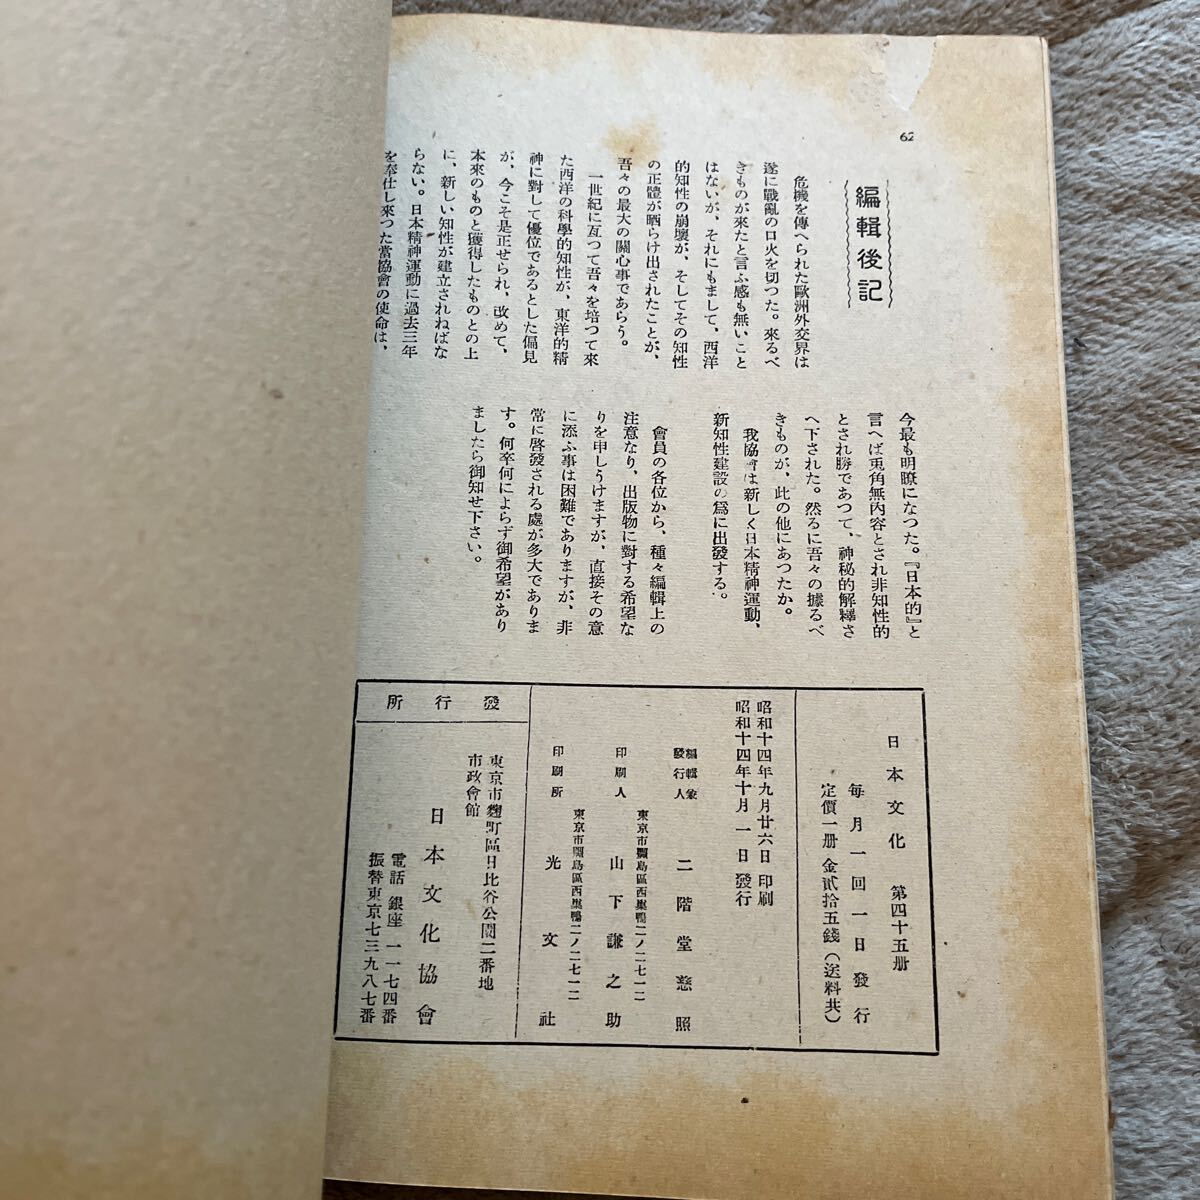 62
編輯後記
危機を傳へられた歐洲外交界は
遂に戰亂の口火を切つた。來るべ
きものが來たと言ふ感も無いこと
はないが、それにもまして、西洋
的知性の崩壞が、そしてその知性
の正體が晒らけ出されたことが、
吾々の最大の關心事であらう。
一世紀に亙つて吾々を培つて來
た西洋の科學的知性が、東洋的精
神に對して優位であるとした偏見
が、今こそ是正せられ、改めて、
本來のものと獲得したものとの上
に、新しい知性が建立されねばな
らない。日本精神運動に過去三年
を奉仕し來つた當協會の使命は、
今最も明瞭になつた。『日本的』と
言へば兎角無內容とされ非知性的
とされ勝であつて、神秘的解釋さ
へ下された。然るに吾々の據るべ
きものが、此の他にあつたか。
我協會は新しく日本精神運動、
新知性建設の爲に出發する。
會員の各位から、種々編輯上の
注意なり、出版物に對する希望な
りを申しうけますが、直接その意
に添ふ事は困難でありますが、非
常に啓發される處が多大でありま
す。何卒何によらず御希望があり
ましたら御知せ下さい。
日本文化 第四十五册
每月一回一日發行
定價一册 金貳拾五錢（送料共）
昭和十四年九月廿六日印刷
昭和十四年十月一日發行
編輯兼
發行人 二階堂慈照
東京市豐島區西巢鴨二ノ二七一二
印刷人 山下謙之助
東京市豐島區西巢鴨二ノ二七一二
印刷所 光文社
發行所
東京市麴町區日比谷公園二番地
市政會館
日本文化協會
電話 銀座 一一七四番
振替東京七三九八七番